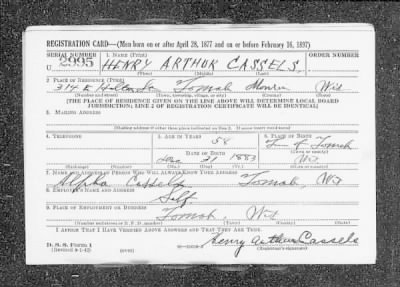 REGISTRATION CARD—(Men born on or after April 28, 1877 and on or before February 16, 1897)
SERIAL NUMBER 1. NAME (Print) ORDER NUMBER
U 2995 HENRY ARTHUR CASSELS
(First) (Middle) (Last)
2. PLACE OF RESIDENCE (Print)
314 E Tomah Monroe Wis
(Number and street) (Town, township, village, or city) (County) (State)
[THE PLACE OF RESIDENCE GIVEN ON THE LINE ABOVE WILL DETERMINE LOCAL BOARD
JURISDICTION; LINE 2 OF REGISTRATION CERTIFICATE WILL BE IDENTICAL]
3. MAILING ADDRESS
[Mailing address if other than place indicated on line 2. If same insert word same]
4. TELEPHONE 5. AGE IN YEARS 6. PLACE OF BIRTH
58 Tomah
DATE OF BIRTH (Town or county)
21 1883 Wis
(Exchange) (Number) (Mo.) (Day) (Yr.) (State or country)
7. NAME AND ADDRESS OF PERSON WHO WILL ALWAYS KNOW YOUR ADDRESS
Alpha Cassels Tomah, Wis
8. EMPLOYER'S NAME AND ADDRESS
Self
9. PLACE OF EMPLOYMENT OR BUSINESS
Tomah, Wis
(Number and street or R. F. D. number) (Town) (County) (State)
I AFFIRM THAT I HAVE VERIFIED ABOVE ANSWERS AND THAT THEY ARE TRUE.
D. S. S. Form 1 Henry Arthur Cassels
(Revised 4-1-42) (over) (Registrant's signature)